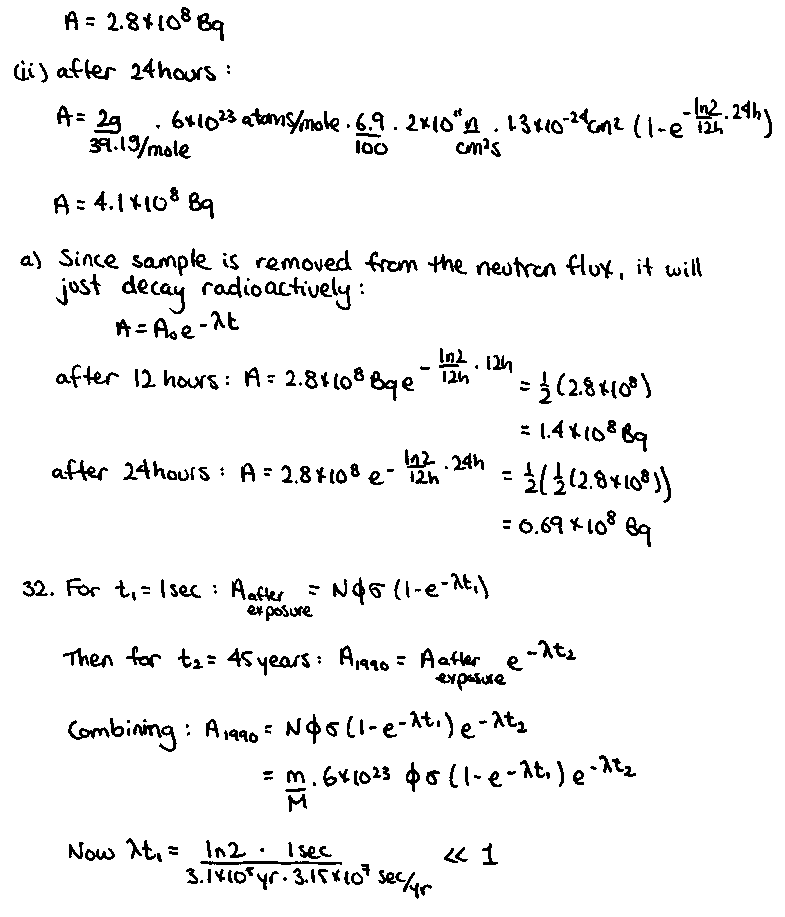 A = 2.8×10⁸ Bq
(ii) after 24 hours :
A = 2g/39.1g/mole · 6×10²³ atoms/mole · 6.9/100 · 2×10¹¹ n/cm²s · 1.3×10⁻²⁴ cm² (1-e^(-ln2/12h · 24h))
A = 4.1×10⁸ Bq
a) Since sample is removed from the neutron flux, it will
just decay radioactively :
A = A₀e^(-λt)
after 12 hours : A = 2.8×10⁸ Bq e^(-ln2/12h · 12h) = ½(2.8×10⁸)
= 1.4×10⁸ Bq
after 24 hours : A = 2.8×10⁸ e^(-ln2/12h · 24h) = ½(½(2.8×10⁸))
= 0.69×10⁸ Bq
32. For t₁ = 1sec : A after exposure = Nϕσ (1-e^(-λt₁))
Then for t₂ = 45 years : A₁₉₉₀ = A after exposure e^(-λt₂)
Combining : A₁₉₉₀ = Nϕσ (1-e^(-λt₁)) e^(-λt₂)
= m/M · 6×10²³ ϕσ (1-e^(-λt₁)) e^(-λt₂)
Now λt₁ = ln2 · 1sec / 3.1×10⁵ yr · 3.15×10⁷ sec/yr << 1